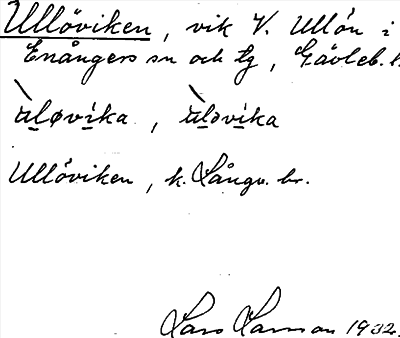 Ullöviken, vik V. Ullön i
Enångers sn och tg, Gävleb. l.
ùløvika, ùlɔvika
Ullöviken, k. Långv. br.
Lars Larsson 1932.